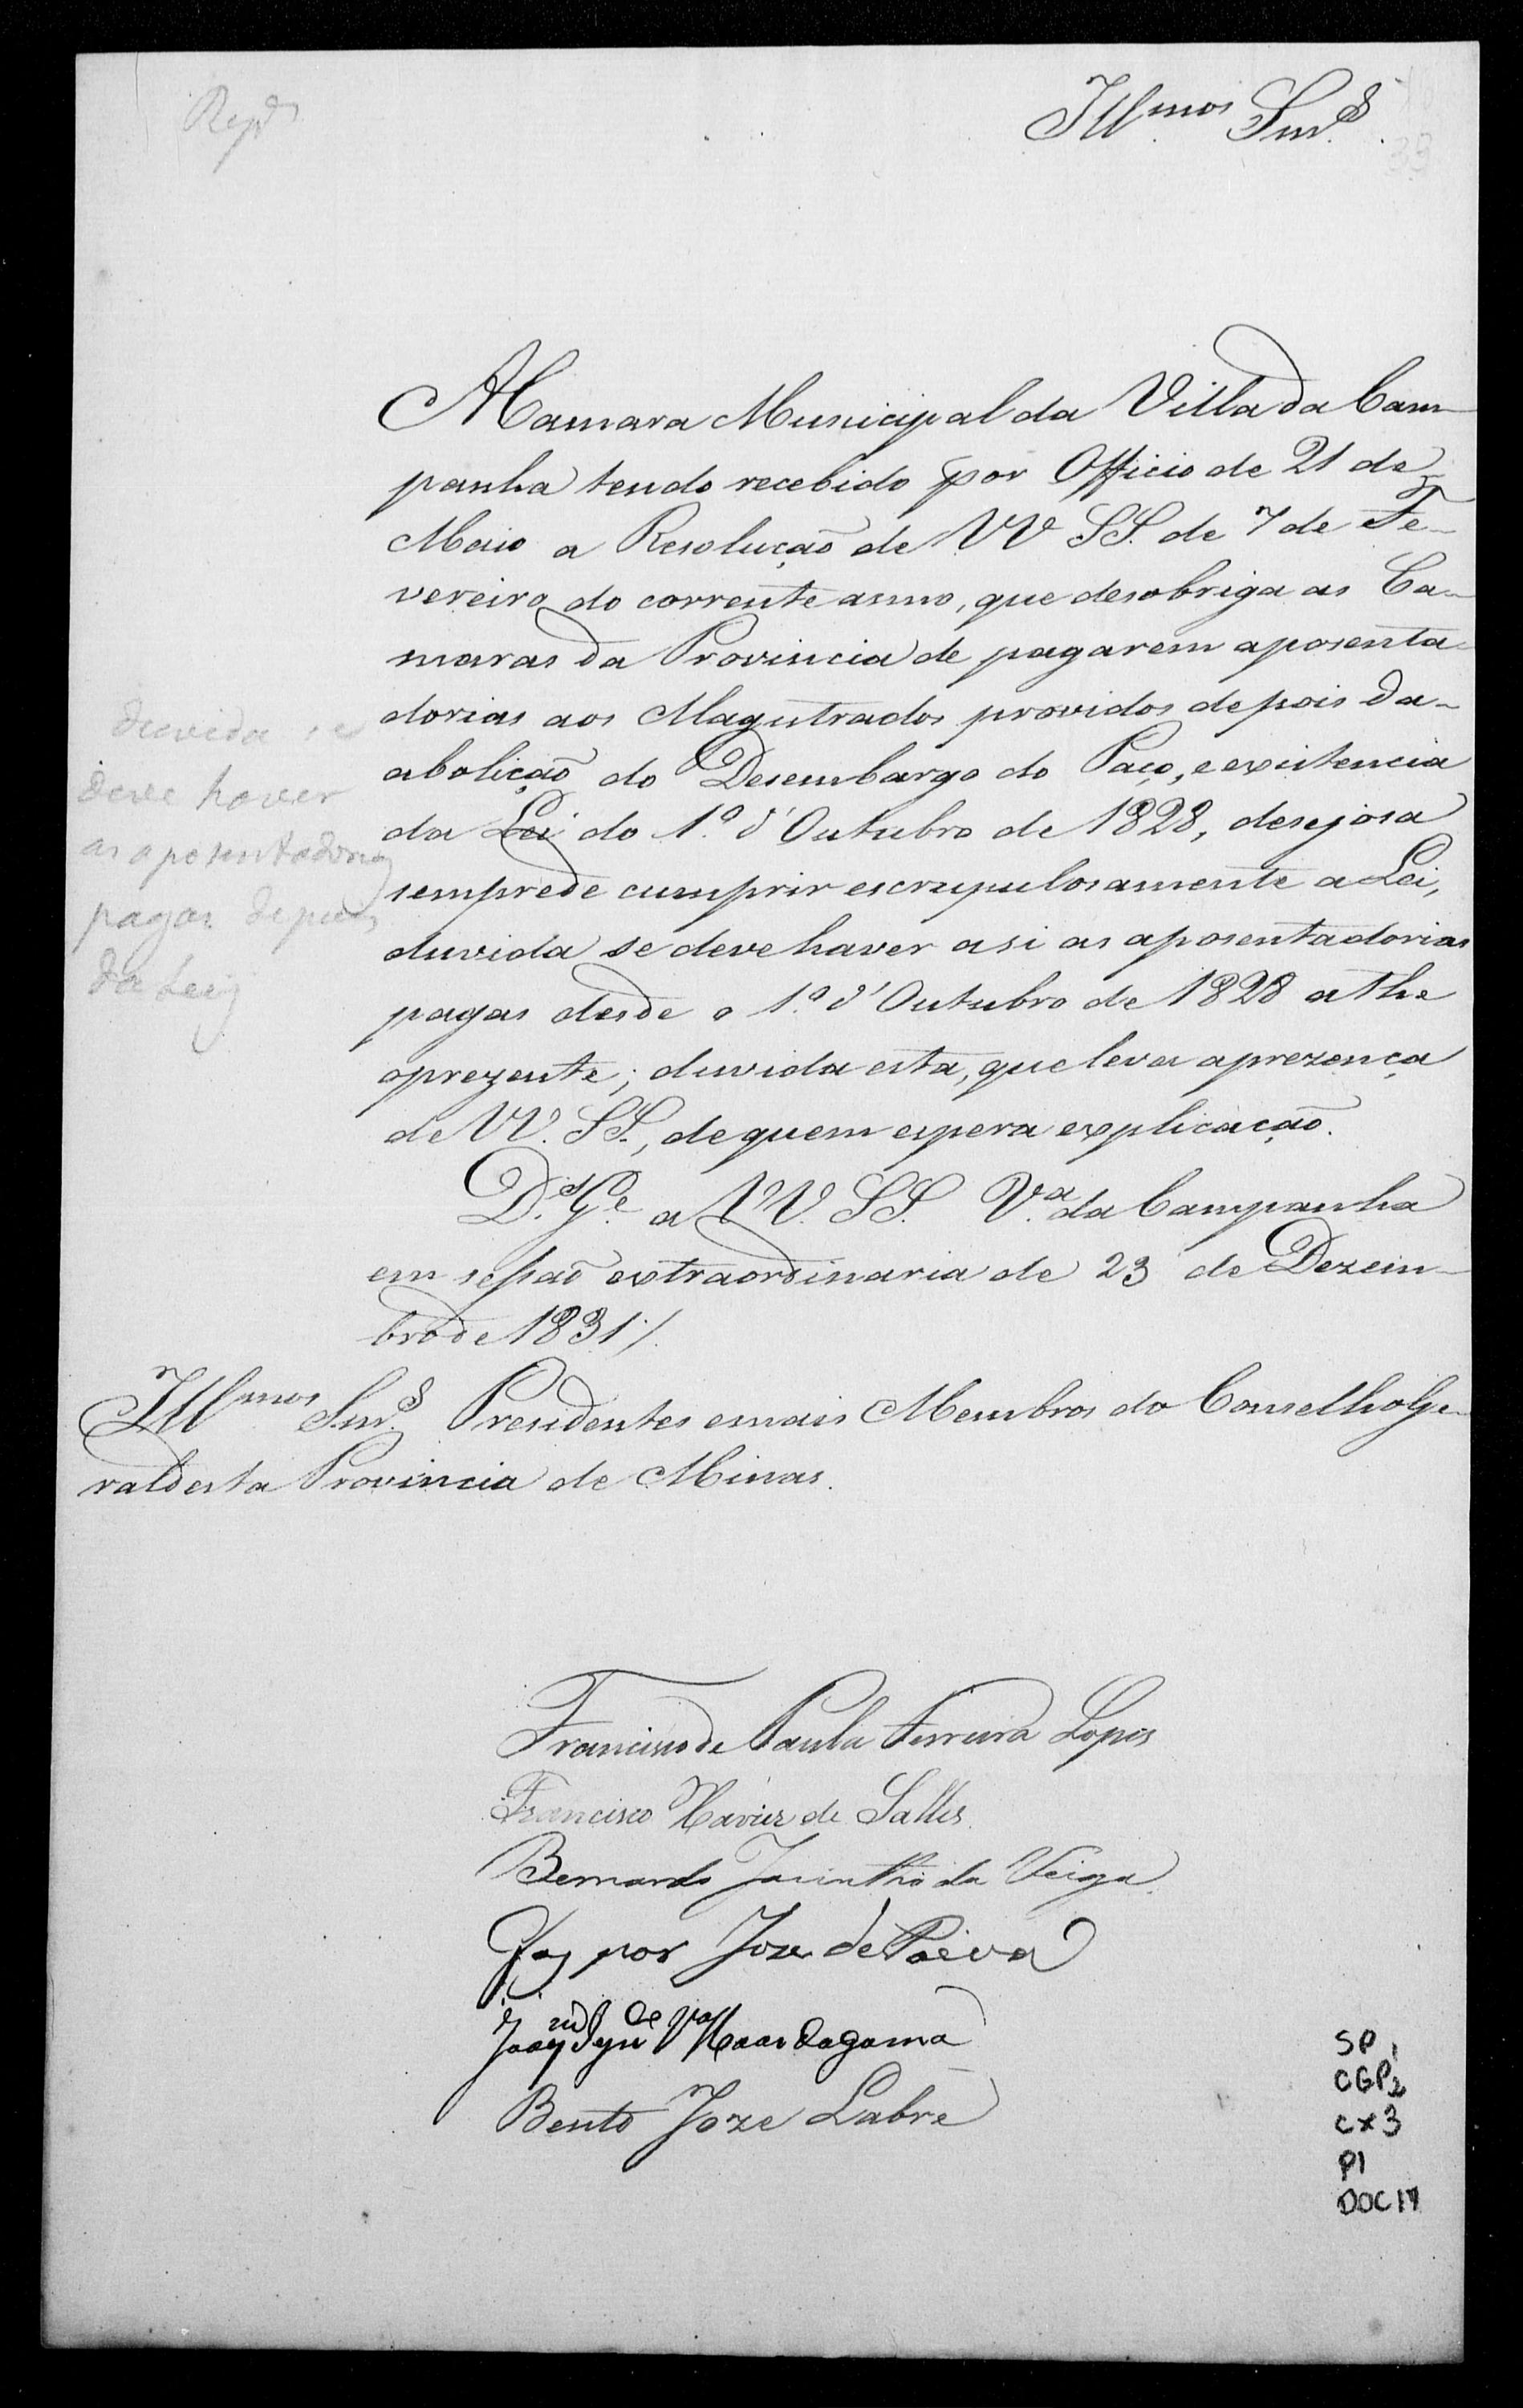 Repd.os
Ill.mos Snr.s
33
A Camara Municipal da Villa da Cam-
panha tendo recebido por Officio de 21 de
Maio a Resolução de VV SS. de 7 de Fe-
vereiro do corrente anno, que desobriga as Ca-
maras da Provincia de pagarem aposenta-
dorias aos Magistrados providos depois da
abolição do Desembargo do Paço, e existencia
da Lei do 1.º d'Outubro de 1828, desejosa
sempre de cumprir escrupulosamente a Lei,
duvida se deve haver a si as aposentadorias
pagas desde o 1.º d'Outubro de 1828 athe
o prezente; duvida esta, que leva a prezença
de VV. SS., de quem espera explicação.
duvida se
deve haver
as aposentadorias
pagas depues
da Leij
D.s G.e a VV. SS. V.a da Campanha
em sessão extraordinaria de 23 de Dezem-
bro de 1831 ./.
Ill.mos Snr.s Presidentes e mais Membros do Conselho Ge-
ral desta Provincia de Minas.
Francisco de Paula Ferreira Lopes
Francisco Xavier de Salles.
Bernardo Jacintho da Veiga.
Gaspar Joze de Paiva
Joaq.m de V.as da gama
Bento Joze Labre
SP 1
CGP2
Cx 3
P1
DOC 17